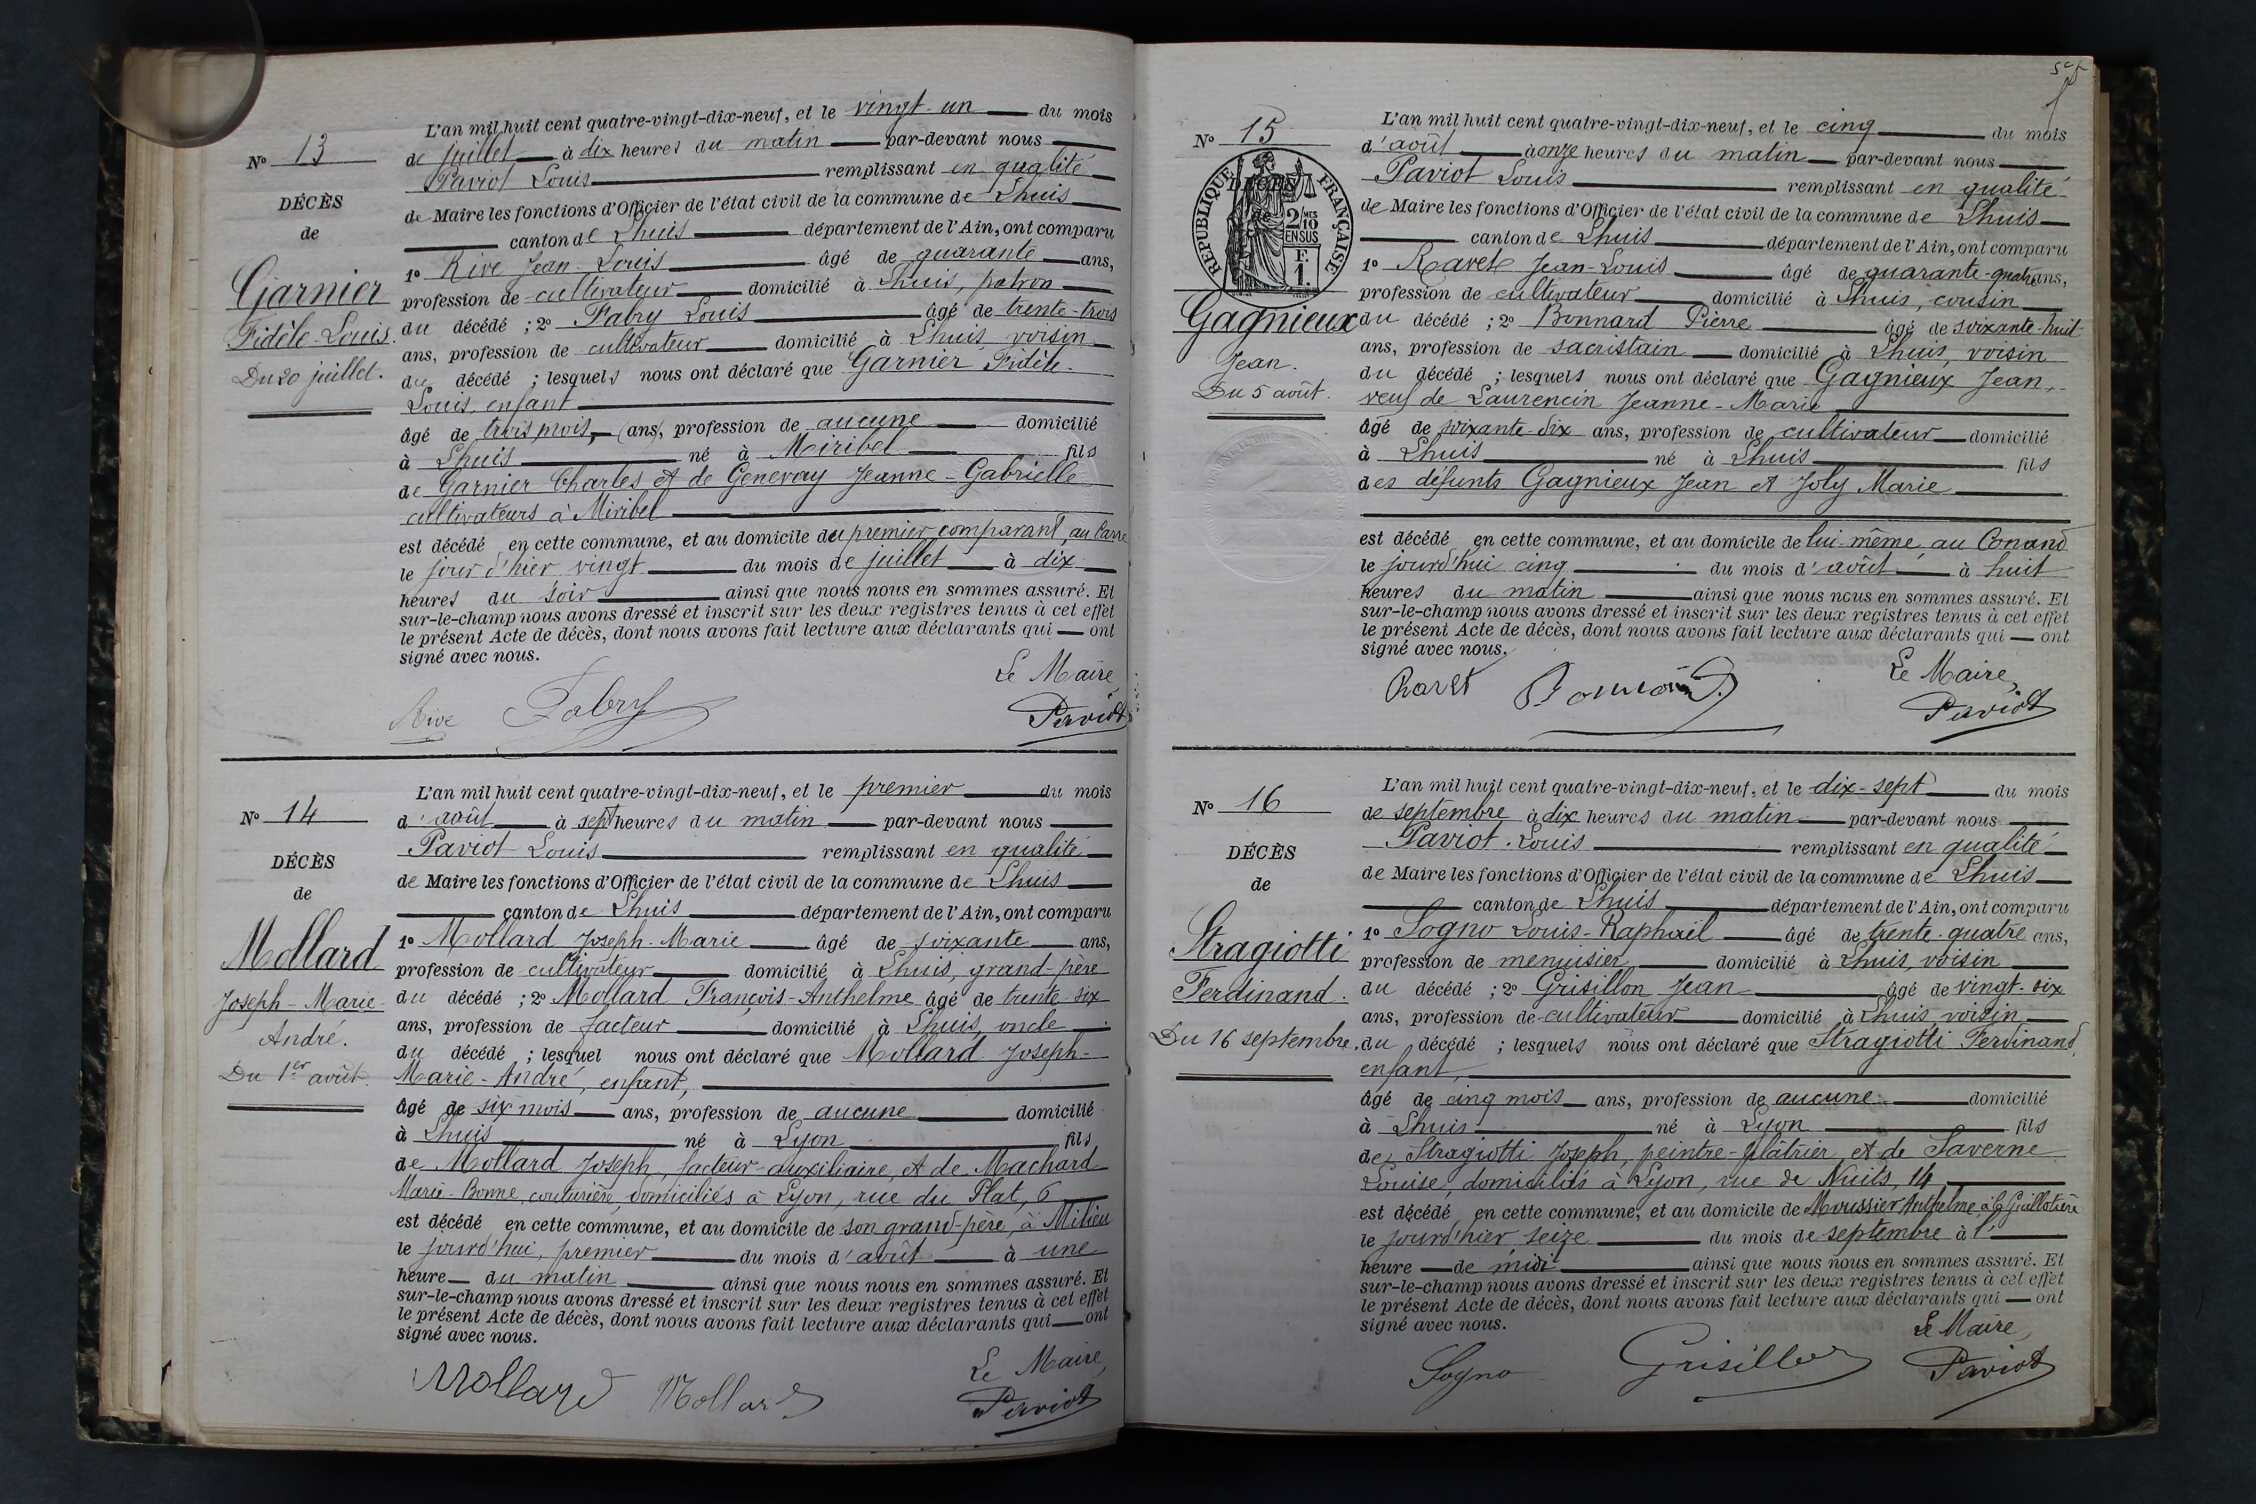 N° 13
DÉCÈS
de
Garnier
Fidèle-Louis.
Du 20 juillet.
L'an mil huit cent quatre-vingt-dix-neuf, et le vingt-un du mois
de juillet à dix heures du matin par-devant nous
Paviot Louis remplissant en qualité
de Maire les fonctions d'Officier de l'état civil de la commune de Lhuis
canton de Lhuis département de l'Ain, ont comparu
1° Rive Jean-Louis âgé de quarante ans,
profession de cultivateur domicilié à Lhuis, patron
du décédé ; 2° Fabry Louis âgé de trente-trois
ans, profession de cultivateur domicilié à Lhuis voisin
du décédé ; lesquels nous ont déclaré que Garnier Fidèle-
Louis, enfant
âgé de trois mois, (ans), profession de aucune domicilié
à Lhuis né à Miribel fils
de Garnier Charles et de Genevay Jeanne-Gabrielle
cultivateurs à Miribel
est décédé en cette commune, et au domicile du premier comparant, au
le jour d'hier vingt du mois de juillet à dix
heures du soir ainsi que nous nous en sommes assuré. Et
sur-le-champ nous avons dressé et inscrit sur les deux registres tenus à cet effet
le présent Acte de décès, dont nous avons fait lecture aux déclarants qui ont
signé avec nous.
Le Maire
Rive Fabry Paviot
N° 14
DÉCÈS
de
Mollard
Joseph-Marie-
André.
Du 1er août.
L'an mil huit cent quatre-vingt-dix-neuf, et le premier du mois
d'août à sept heures du matin par-devant nous
Paviot Louis remplissant en qualité
de Maire les fonctions d'Officier de l'état civil de la commune de Lhuis
canton de Lhuis département de l'Ain, ont comparu
1° Mollard Joseph-Marie âgé de soixante ans,
profession de cultivateur domicilié à Lhuis, grand-père
du décédé ; 2° Mollard François-Anthelme âgé de trente-six
ans, profession de facteur domicilié à Lhuis, oncle
du décédé ; lesquel nous ont déclaré que Mollard Joseph-
Marie-André, enfant,
âgé de six mois ans, profession de aucune domicilié
à Lhuis né à Lyon fils
de Mollard Joseph, facteur-auxiliaire, et de Machard
Marie-Bonne, couturière, domiciliés à Lyon, rue du Plat, 6
est décédé en cette commune, et au domicile de son grand-père, à Milieu
le jourd'hui, premier du mois d'août à une
heure du matin ainsi que nous nous en sommes assuré. Et
sur-le-champ nous avons dressé et inscrit sur les deux registres tenus à cet effet
le présent Acte de décès, dont nous avons fait lecture aux déclarants qui ont
signé avec nous.
Le Maire,
Mollard Mollard Paviot
N° 15
DÉCÈS
RÉPUBLIQUE FRANÇAISE
2/10 MES
EN SUS
F.
1.
Gagnieux
Jean.
Du 5 août.
L'an mil huit cent quatre-vingt-dix-neuf, et le cinq du mois
d'août à onze heures du matin par-devant nous
Paviot Louis remplissant en qualité
de Maire les fonctions d'Officier de l'état civil de la commune de Lhuis
canton de Lhuis département de l'Ain, ont comparu
1° Ravet Jean-Louis âgé de quarante-quatre ans,
profession de cultivateur domicilié à Lhuis, cousin
du décédé ; 2° Bonnard Pierre âgé de soixante-huit
ans, profession de sacristain domicilié à Lhuis, voisin
du décédé ; lesquels nous ont déclaré que Gagnieux Jean,
veuf de Laurencin Jeanne-Marie
âgé de soixante-dix ans, profession de cultivateur domicilié
à Lhuis né à Lhuis fils
des défunts Gagnieux Jean et Joly Marie
est décédé en cette commune, et au domicile de lui-même, au Conand
le jourd'hui cinq du mois d'août à huit
heures du matin ainsi que nous nous en sommes assuré. Et
sur-le-champ nous avons dressé et inscrit sur les deux registres tenus à cet effet
le présent Acte de décès, dont nous avons fait lecture aux déclarants qui ont
signé avec nous.
Le Maire,
Ravet Bonnard Paviot
N° 16
DÉCÈS
de
Stragiotti
Ferdinand.
Du 16 septembre.
L'an mil huit cent quatre-vingt-dix-neuf, et le dix-sept du mois
de septembre à dix heures du matin par-devant nous
Paviot Louis remplissant en qualité
de Maire les fonctions d'Officier de l'état civil de la commune de Lhuis
canton de Lhuis département de l'Ain, ont comparu
1° Sogno Louis-Raphaël âgé de trente-quatre ans,
profession de menuisier domicilié à Lhuis, voisin
du décédé ; 2° Grisillon Jean âgé de vingt-six
ans, profession de cultivateur domicilié à Lhuis voisin
du décédé ; lesquels nous ont déclaré que Stragiotti Ferdinand,
enfant,
âgé de cinq mois ans, profession de aucune domicilié
à Lhuis né à Lyon fils
de Stragiotti Joseph, peintre-plâtrier, et de Saverne
Louise, domiciliés à Lyon, rue de Nuits, 14,
est décédé en cette commune, et au domicile de Moussier Anthelme, à la Guillotière
le jourd'hier seize du mois de septembre à l'
heure de midi ainsi que nous nous en sommes assuré. Et
sur-le-champ nous avons dressé et inscrit sur les deux registres tenus à cet effet
le présent Acte de décès, dont nous avons fait lecture aux déclarants qui ont
signé avec nous.
Le Maire,
Sogno Grisillon Paviot